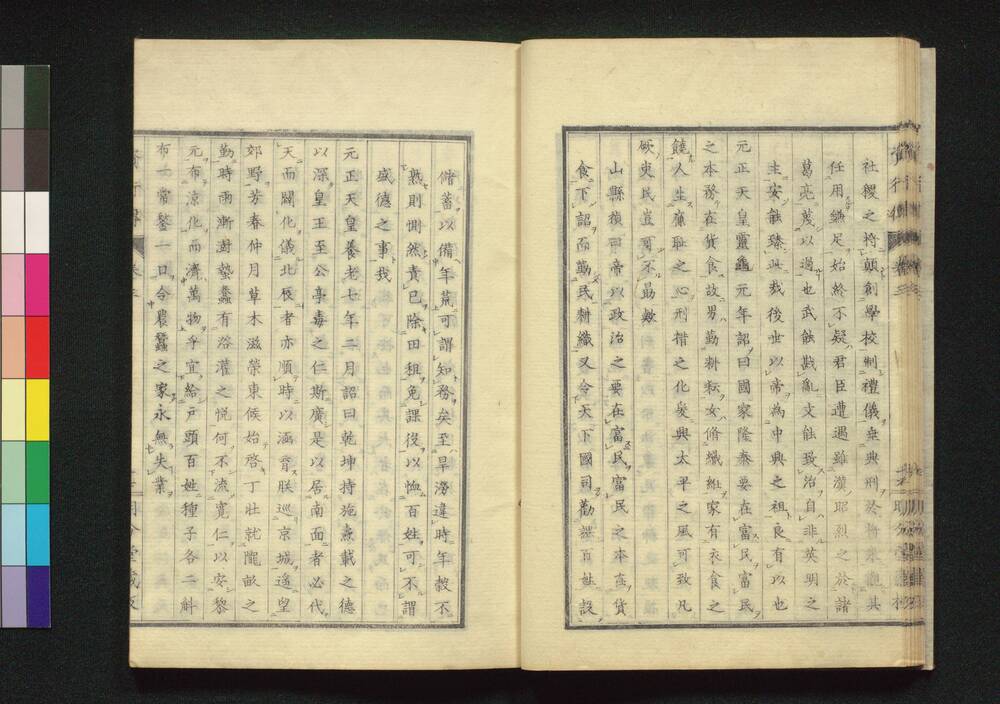 社稷之将顛創學校制禮儀垂典刑於将来觀其
任用無疑始終不疑君臣遭遇雖漢昭烈之於諸
葛亮蔑以過也武能戡亂文能致治自非英明之
主安能臻此哉後世以帝為中興之祖良有以也
元正天皇靈龜元年詔曰國家隆泰要在富民富民
之本務在貨食故男勤耕耘女脩織紝家有衣食之
饒人生廉恥之心刑措之化爰興太平之風可致凡
厥吏民豈可不勗歟
山縣禎曰帝以政治之要在富民富民之本在貨
食下詔而勸民耕織又令天下國司勸課百姓設
儲蓄以備年荒可謂知務矣至旱澇違時年穀不
熟則惻然責己除田租免課役以恤百姓可不謂
盛德之事哉
元正天皇養老七年二月詔曰乾坤持施燾載之德
以深皇王至公亭毒之仁斯廣是以居南面者必代
天而闡化儀北辰者亦順時以涵育朕巡京城遙望
郊野芳春仲月草木滋榮東候始啓丁壯就隴畝之
勤時雨漸澍蟄蠢有浴灌之悦何不流寛仁以安黎
元布凉化而濟萬物乎宜給戸頭百姓種子各二斛
布一常鍬一口令農蠶之家永無失業